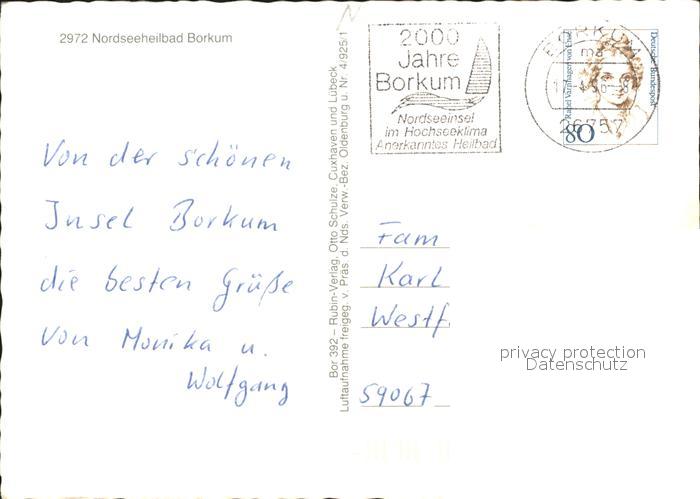 2972 Nordseeheilbad Borkum
Von der schönen
Insel Borkum
die besten Grüße
von Monika u.
Wolfgang
Bor 392 – Rubin-Verlag, Otto Schulze, Cuxhaven und Lübeck
Luftaufnahme freigeg. v. Präs. d. Nds. Verw.-Bez. Oldenburg u. Nr. 4/925/1
2000
Jahre
Borkum
Nordseeinsel
im Hochseeklima
Anerkanntes Heilbad
BORKUM
ma
26757
Rahel Varnhagen von Ense
Deutsche Bundespost
80
Fam
Karl
Westf.
59067
privacy protection
Datenschutz